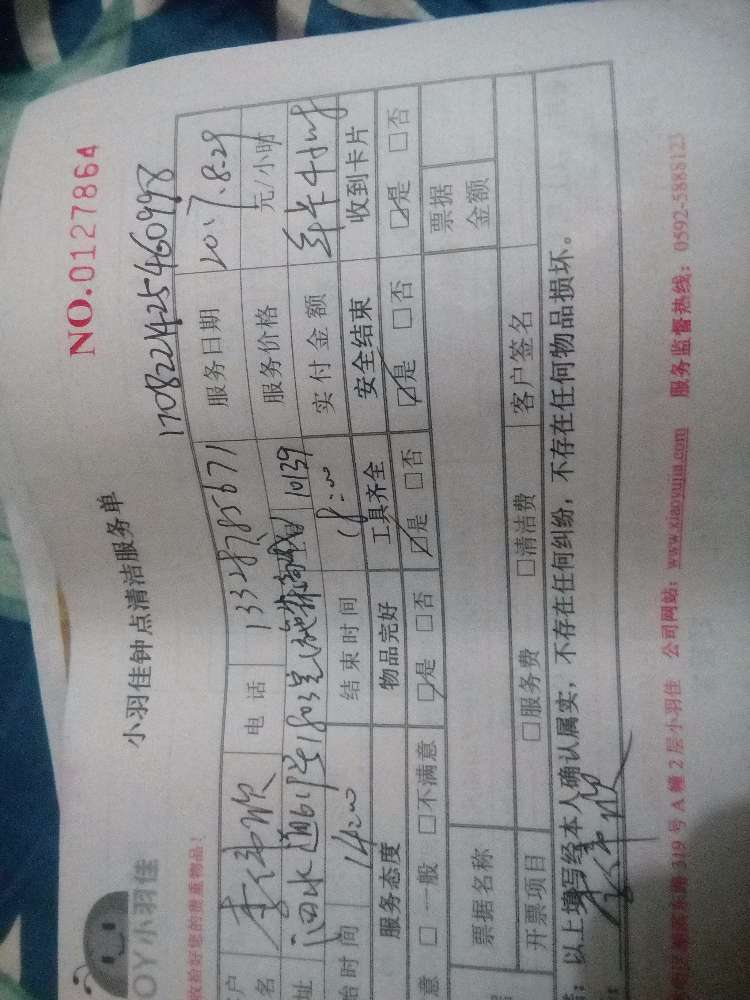 NO.0127864
小羽佳钟点清洁服务单
170822142546099​8
JOY小羽佳
收拾好您的贵重物品!
户名 李伟欣 电话 13328785671 服务日期 2017.8.29
址 泗水道619号1803 10139 服务价格 元/小时
始时间 14:00 结束时间 18:00 实付金额
服务态度 物品完好 工具齐全 安全结束 收到卡片
意 □一般 □不满意 ☑是 □否 ☑是 □否 ☑是 □否 ☑是 □否
票据名称 票据金额
开票项目 □服务费 □清洁费 客户签名
:以上填写经本人确认属实,不存在任何纠纷,不存在任何物品损坏。
李伟欣
319号A幢2层小羽佳 公司网站:www.xiaoyujia.com 服务监督热线:0592-5888123